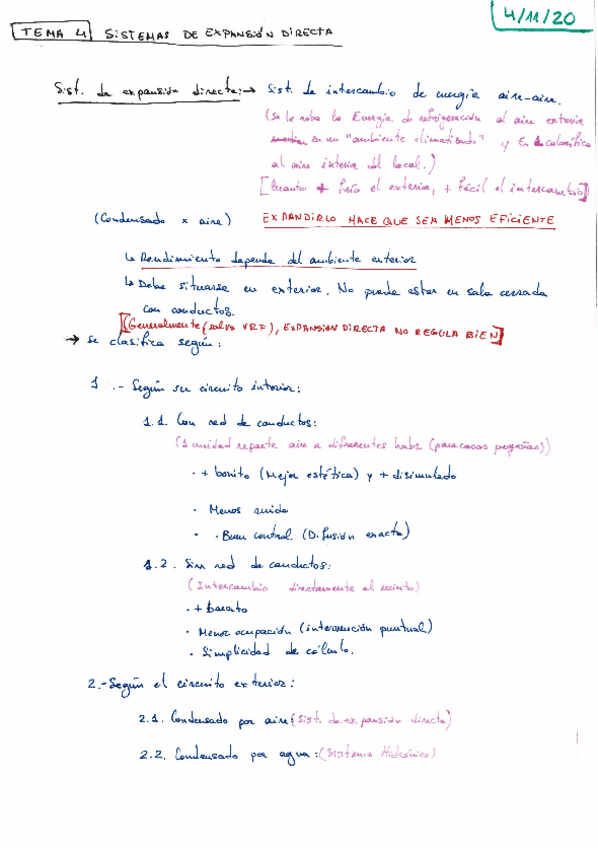 4/11/20
TEMA 4 SISTEMAS DE EXPANSIÓN DIRECTA
Sist. de expansión directa: → Sist. de intercambio de energía aire-aire.
(Se le roba la Energía de refrigeración al aire exterior
en un "ambiente climatizado" y En. calorífica
al aire interior del local.)
[Cuanto + frío el exterior, + fácil el intercambio]
(Condensado x aire) EXPANDIRLO HACE QUE SEA MENOS EFICIENTE
↳ Rendimiento depende del ambiente exterior
↳ Debe situarse en exterior. No puede estar en sala cerrada
con conductos.
[Generalmente (salvo VRF), EXPANSIÓN DIRECTA NO REGULA BIEN]
→ Se clasifica según:
1.- Según su circuito interior:
1.1. Con red de conductos:
(1 unidad reparte aire a diferentes habs. (para casas pequeñas))
· + bonito (Mejor estética) y + disimulado
· Menos ruido
· Buen control (Difusión exacta)
1.2. Sin red de conductos:
(Intercambio directamente al recinto)
· + barato
· Menor ocupación (intervención puntual)
· Simplicidad de cálculo.
2.- Según el circuito exterior:
2.1. Condensado por aire (Sist. de expansión directa)
2.2. Condensado por agua: (Sistema Hidrónico)